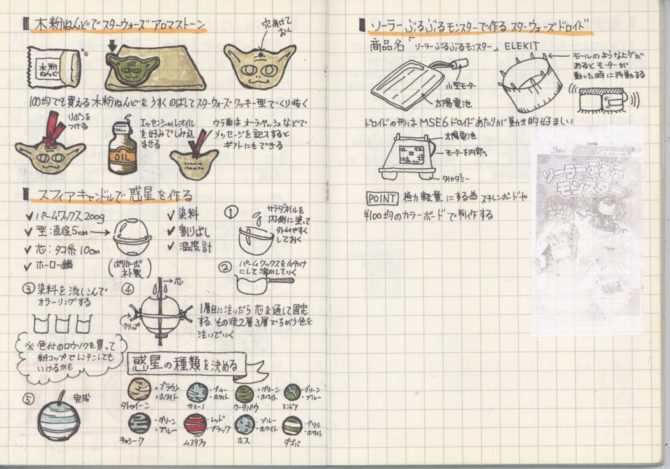 木粉ねんどでスターウォーズ アロマストーン
穴あけておく
木粉ねんど
100均でも買える木粉ねんどをうすくのばしてスターウォーズクッキー型でくり抜く
リボンをつける
OIL
エッセンシャルオイルを好みでしみ込ませる
メッセージを記入すると
ギフトにもできる
スフィアキャンドルで惑星を作る
✓ パームワックス200g
✓ 型：直径5cm
✓ 芯：タコ糸10cm
✓ ホーロー鍋
✓ 染料
✓ 割りばし
✓ 温度計
①
サラダオイルを内側に塗って外れやすくしておく
②
③ 染料を流しこんでカラーリングする
④
芯
クリップ
1層目に注いだら芯を通して固定する
※色付のロウソクを買って
紙コップでレンチンしても
いけるかも
⑤ 完成
惑星の種類を決める
・ブラウン
・ホワイト
・ブルー
・ホワイト
・グリーン
・ホワイト
・グリーン
・ブルー
タトゥイーン
カミーノ
エンドア
・グリーン
・ブルー
・レッド
・ブラック
・ブルー
・ホワイト
・グリーン
・ホワイト
キャシーク
ムスタファー
ホス
ダゴバ
ソーラーぶるぶるモンスターで作る スターウォーズドロイド
商品名「ソーラーぶるぶるモンスター」 ELEKIT
小型モーター
太陽電池
モールのような上げが
あるとモーターが
動いた時に移動する
ドロイドの形はMSE6ドロイドあたりが動き的好ましい
太陽電池
モーターを内蔵
POINT 極力軽量にする為 スチレンボードや
100均のカラーボードで制作する
ソーラーぶるぶる
モンスター